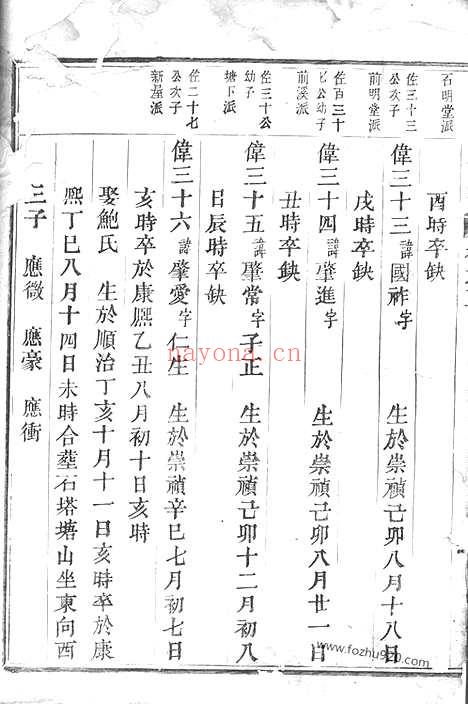 石明堂派
酉時卒缺
佐三十三
公次子
前明堂派
偉三十三 諱國祚 字 生於崇禎己卯八月十八日
戌時卒缺
佐百三十
七公幼子
前溪派
偉三十四 諱肇進 字 生於崇禎己卯八月廿一日
丑時卒缺
佐三十公
幼子
塘下派
偉三十五 諱肇常 字子正 生於崇禎己卯十二月初八
日辰時卒缺
佐二十七
公次子
新屋派
偉三十六 諱肇愛 字仁生 生於崇禎辛巳七月初七日
亥時卒於康熙乙丑八月初十日亥時
娶鮑氏 生於順治丁亥十月十一日亥時卒於康
熙丁巳八月十四日未時合塟石塔塘山坐東向西
三子 應徵 應豪 應衝
nayona.cn
www.fozhu920.com